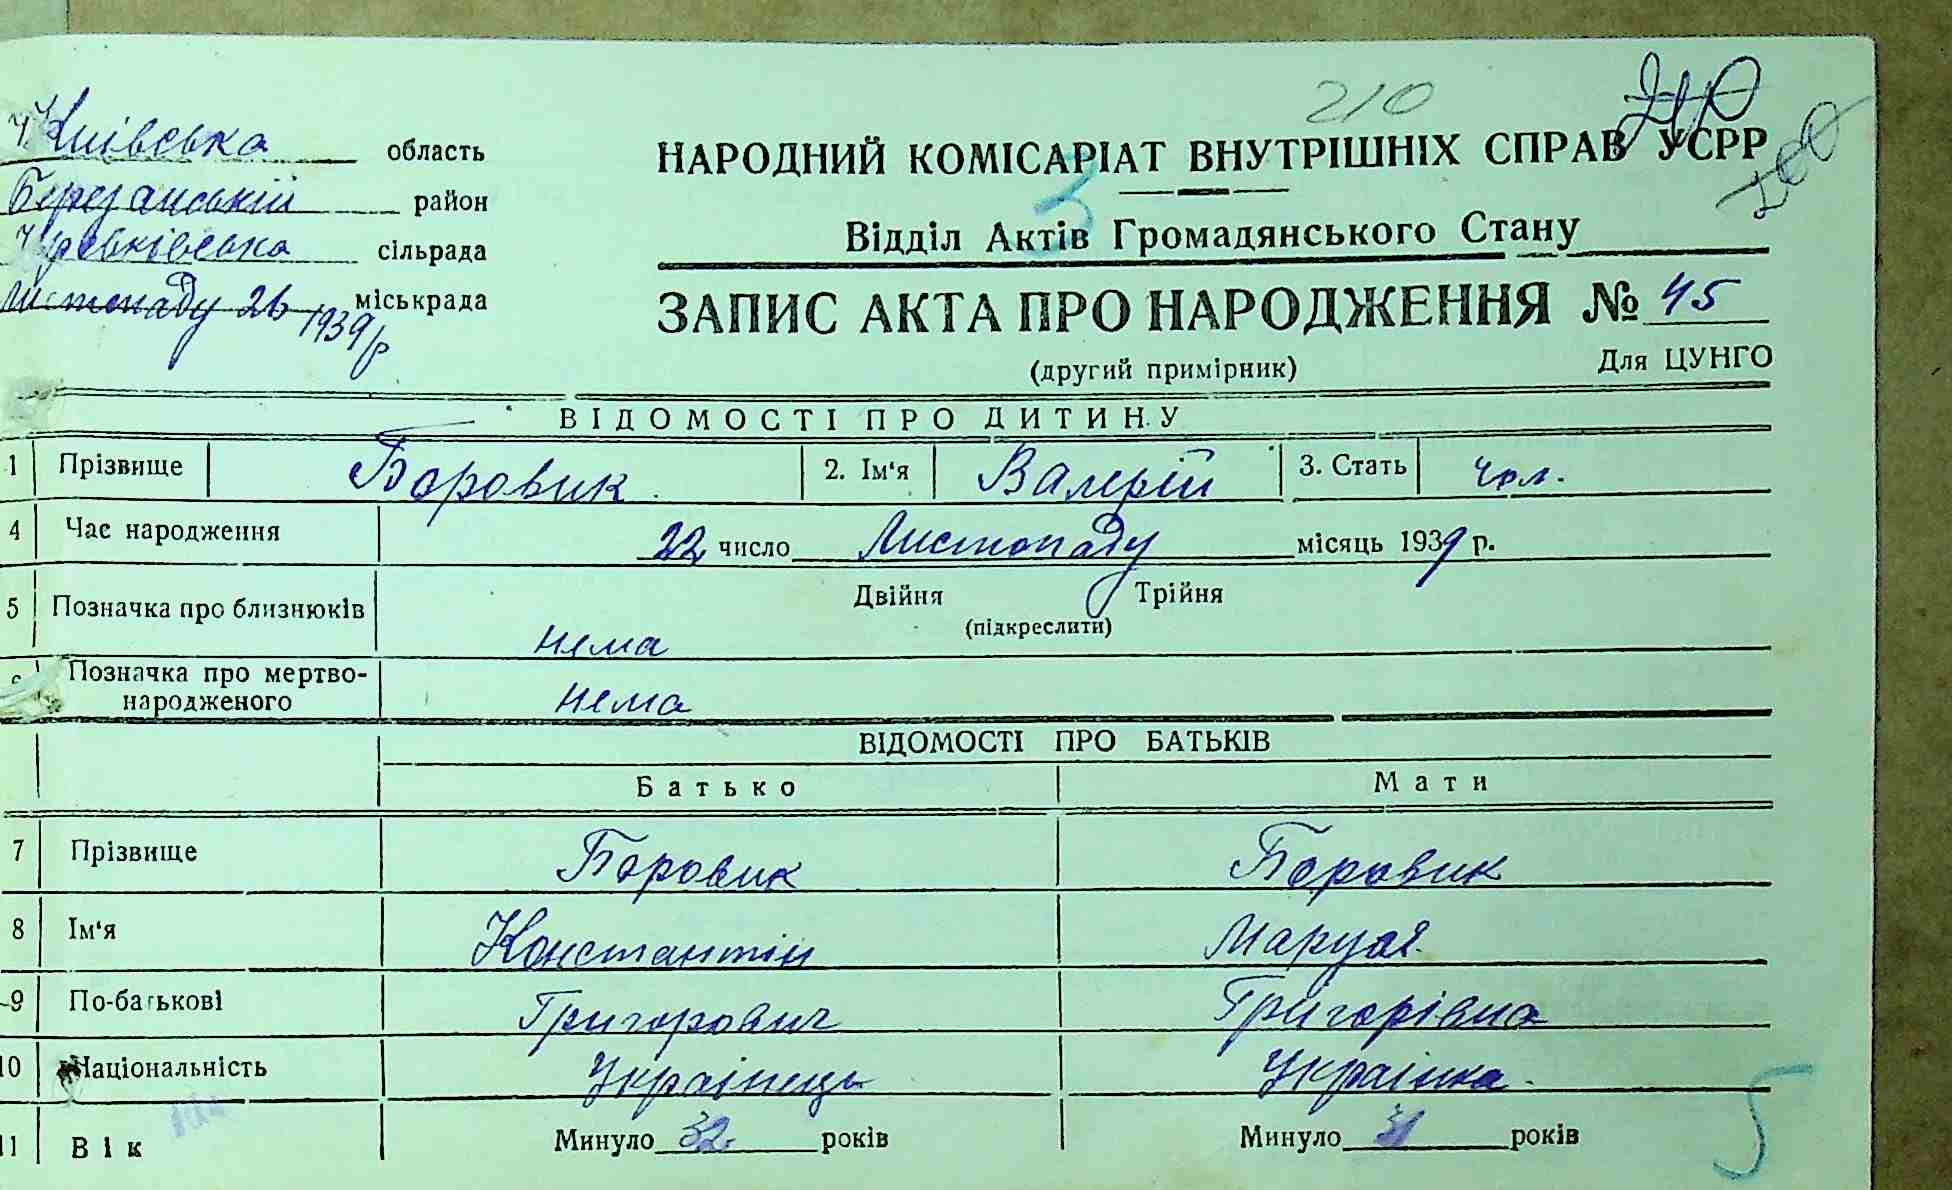 210
Київська область
Березанський район
сільрада
Листопаду 26 1939 р міськрада
НАРОДНИЙ КОМІСАРІАТ ВНУТРІШНІХ СПРАВ УСРР
Відділ Актів Громадянського Стану
ЗАПИС АКТА ПРО НАРОДЖЕННЯ № 45
(другий примірник) Для ЦУНГО
ВІДОМОСТІ ПРО ДИТИНУ
1 Прізвище Боровик 2. Ім'я Валерій 3. Стать чол.
4 Час народження 22 число Листопаду місяць 1939 р.
5 Позначка про близнюків нема Двійня Трійня
(підкреслити)
6 Позначка про мертво-
народженого нема
ВІДОМОСТІ ПРО БАТЬКІВ
Батько Мати
7 Прізвище Боровик Боровик
8 Ім'я Константін Маруся
9 По-батькові Григорович Григорівна
10 Національність Українець Українка
11 Вік Минуло 32 років Минуло 31 років
5